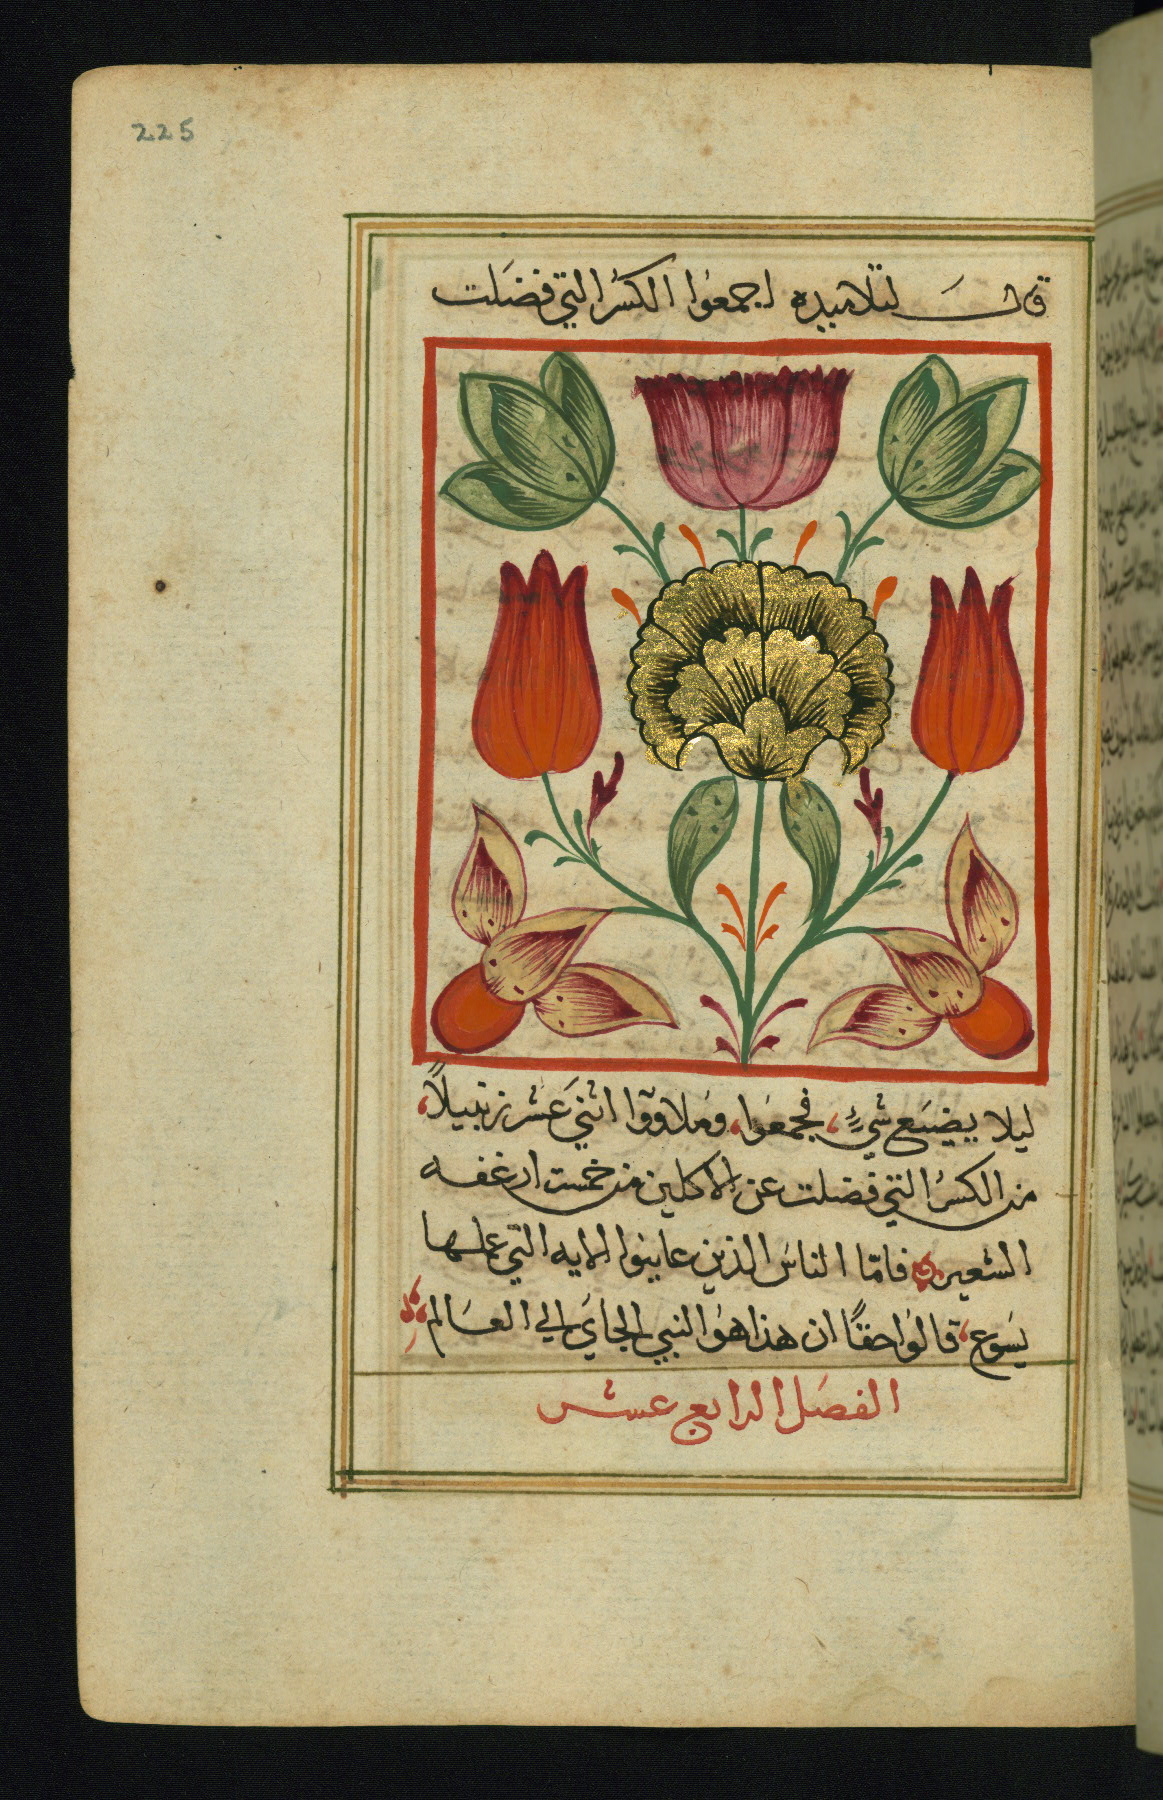 225
قال لتلاميده اجمعوا الكسر التي فضلت
ليلا يضيع شيءٍ، فجمعوا، وملاووا اثني عشر زنبيلاً،
من الكسر التي فضلت عن الاكلين من خمست ارغفه
الشعير فامّا الناس الذين عاينوا الايه التي عملها
يسوع، قالوا حقاً ان هذا هو النبي الجاي الي العالم
الفصل الرابع عشر